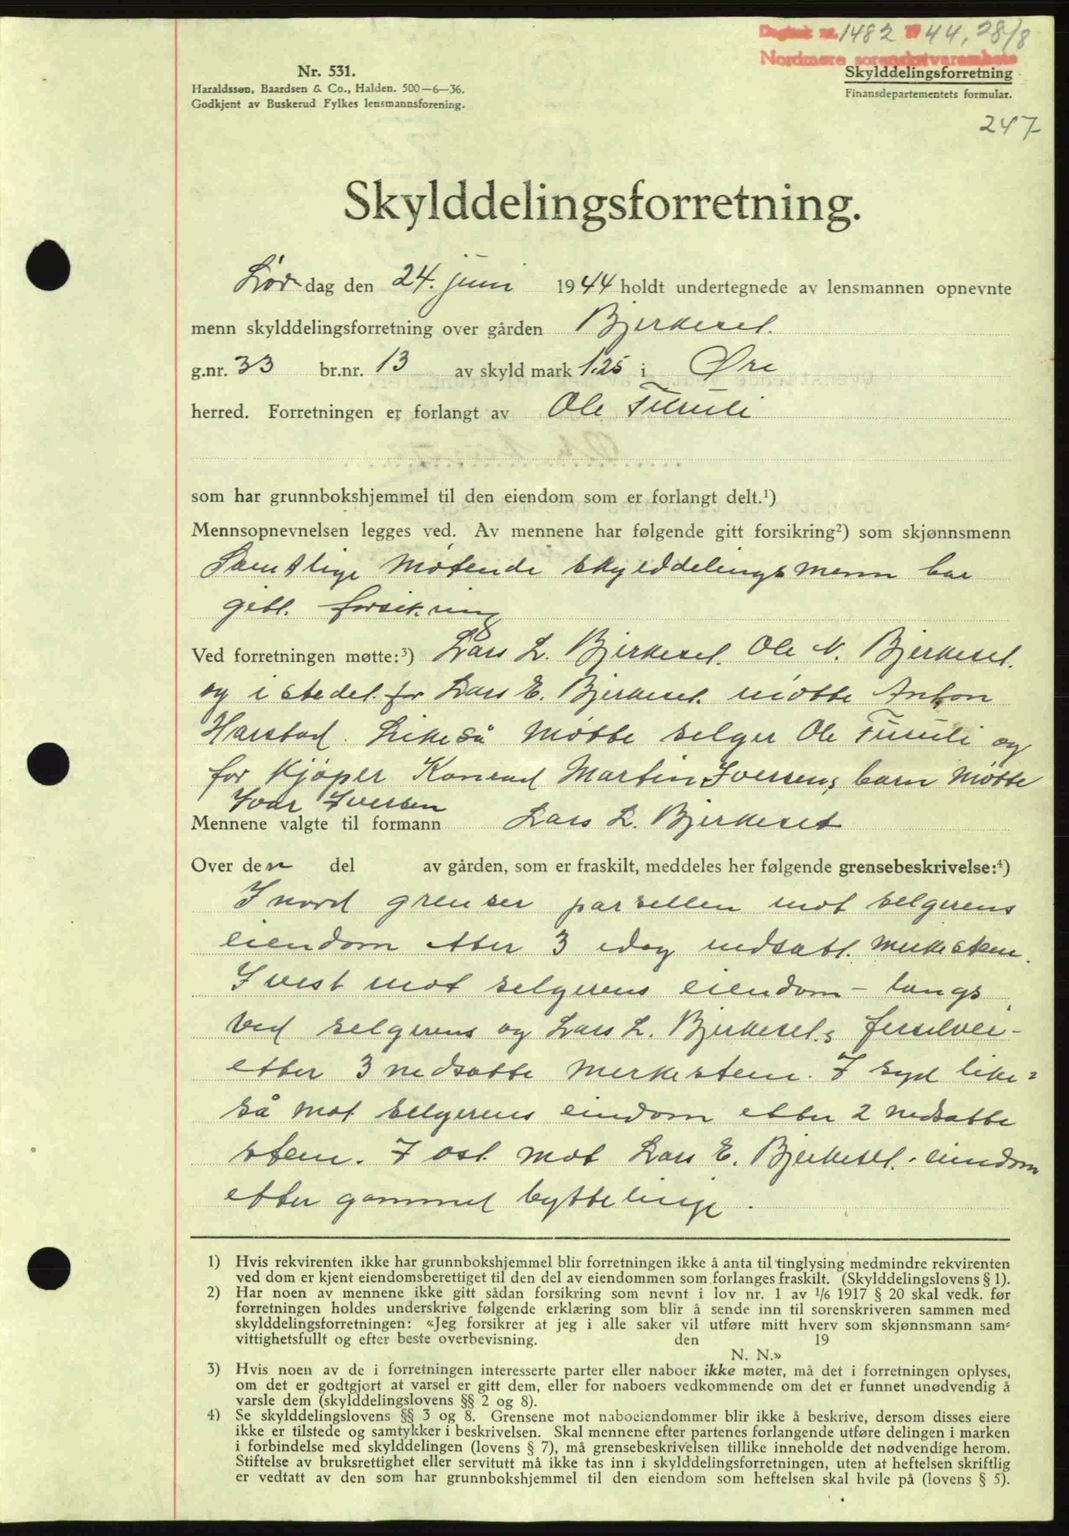 Dagbok nr. 1482 1944, 28/8
Nordmøre sorenskriverembete
Nr. 531.
Haraldssøn, Baardsen & Co., Halden. 500—6—36.
Godkjent av Buskerud Fylkes lensmannsforening.
Skylddelingsforretning
Finansdepartementets formular.
247
Skylddelingsforretning.
Lørdag den 24. juni 1944 holdt undertegnede av lensmannen opnevnte
menn skylddelingsforretning over gården Bjerkeset.
g.nr. 33 br.nr. 13 av skyld mark 1.25 i Øre
herred. Forretningen er forlangt av Ole Fusuli
som har grunnbokshjemmel til den eiendom som er forlangt delt.¹)
Mennsopnevnelsen legges ved. Av mennene har følgende gitt forsikring²) som skjønnsmenn
Samtlige møtende skylddelingsmenn har
gitt. forsikring
Ved forretningen møtte:³) Lars L. Bjerkeset. Ole N. Bjerkeset.
og i stedet for Lars E. Bjerkeset. møtte Anton
Harstad. Likeså møtte selger Ole Fusuli og
for kjøper Konrad Martin Iversens barn møtte
Ivar Iversen
Mennene valgte til formann Lars L. Bjerkeset
Over den del av gården, som er fraskilt, meddeles her følgende grensebeskrivelse:⁴)
I nord grenser parsellen mot selgerens
eiendom etter 3 idag nedsatt. merkesten.
I vest mot selgerens eiendom - langs
ved selgerens og Lars L. Bjerkeset.s fuselvei-
etter 3 nedsatte merkesten. I syd like=
så mot selgerens eindom etter 2 nedsatte
sten. I ost mot Lars E. Bjerkeset. eindom
etter gammel byttelinje.
1) Hvis rekvirenten ikke har grunnbokshjemmel blir forretningen ikke å anta til tinglysing medmindre rekvirenten
ved dom er kjent eiendomsberettiget til den del av eiendommen som forlanges fraskilt. (Skylddelingslovens § 1).
2) Har noen av mennene ikke gitt sådan forsikring som nevnt i lov nr. 1 av 1/6 1917 § 20 skal vedk. før
forretningen holdes underskrive følgende erklæring som blir å sende inn til sorenskriveren sammen med
skylddelingsforretningen: «Jeg forsikrer at jeg i alle saker vil utføre mitt hverv som skjønnsmann sam=
vittighetsfullt og efter beste overbevisning. den 19
N. N.»
3) Hvis noen av de i forretningen interesserte parter eller naboer ikke møter, må det i forretningen oplyses,
om det er godtgjort at varsel er gitt dem, eller for naboers vedkommende om det er funnet unødvendig å
varsle dem (skylddelingslovens §§ 2 og 8).
4) Se skylddelingslovens §§ 3 og 8. Grensene mot naboeiendommer blir ikke å beskrive, dersom disses eiere
ikke er tilstede og samtykker i beskrivelsen. Skal mennene efter partenes forlangende utføre delingen i marken
i forbindelse med skylddelingen (lovens § 7), må grensebeskrivelsen tillike inneholde det nødvendige herom.
Stiftelse av bruksrettighet eller servitutt må ikke tas inn i skylddelingsforretningen, uten at heftelsen skriftlig
er vedtatt av den som har grunnbokshjemmel til den eiendom som heftelsen skal hvile på (lovens § 5).